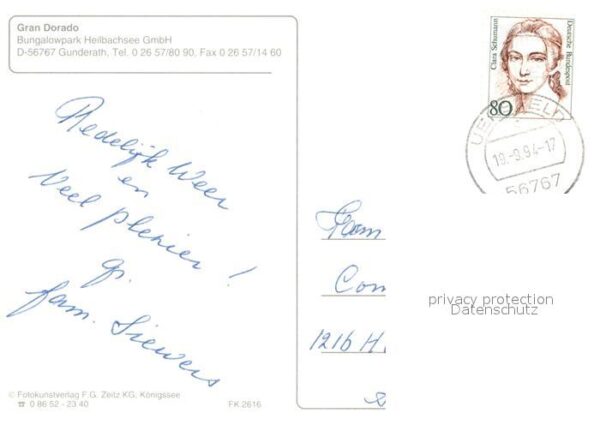 Gran Dorado
Bungalowpark Heilbachsee GmbH
D-56767 Gunderath, Tel. 0 26 57/80 90, Fax 0 26 57/14 60
Clara Schumann
Deutsche Bundespost
80
19.-9.94-17
56767
Redelijk Weer
en
Veel plezier!
gr.
fam. Siewers
Fam
Con
1216 H.
privacy protection
Datenschutz
© Fotokunstverlag F.G. Zeitz KG, Königssee
☎ 0 86 52 - 23 40
FK 2616